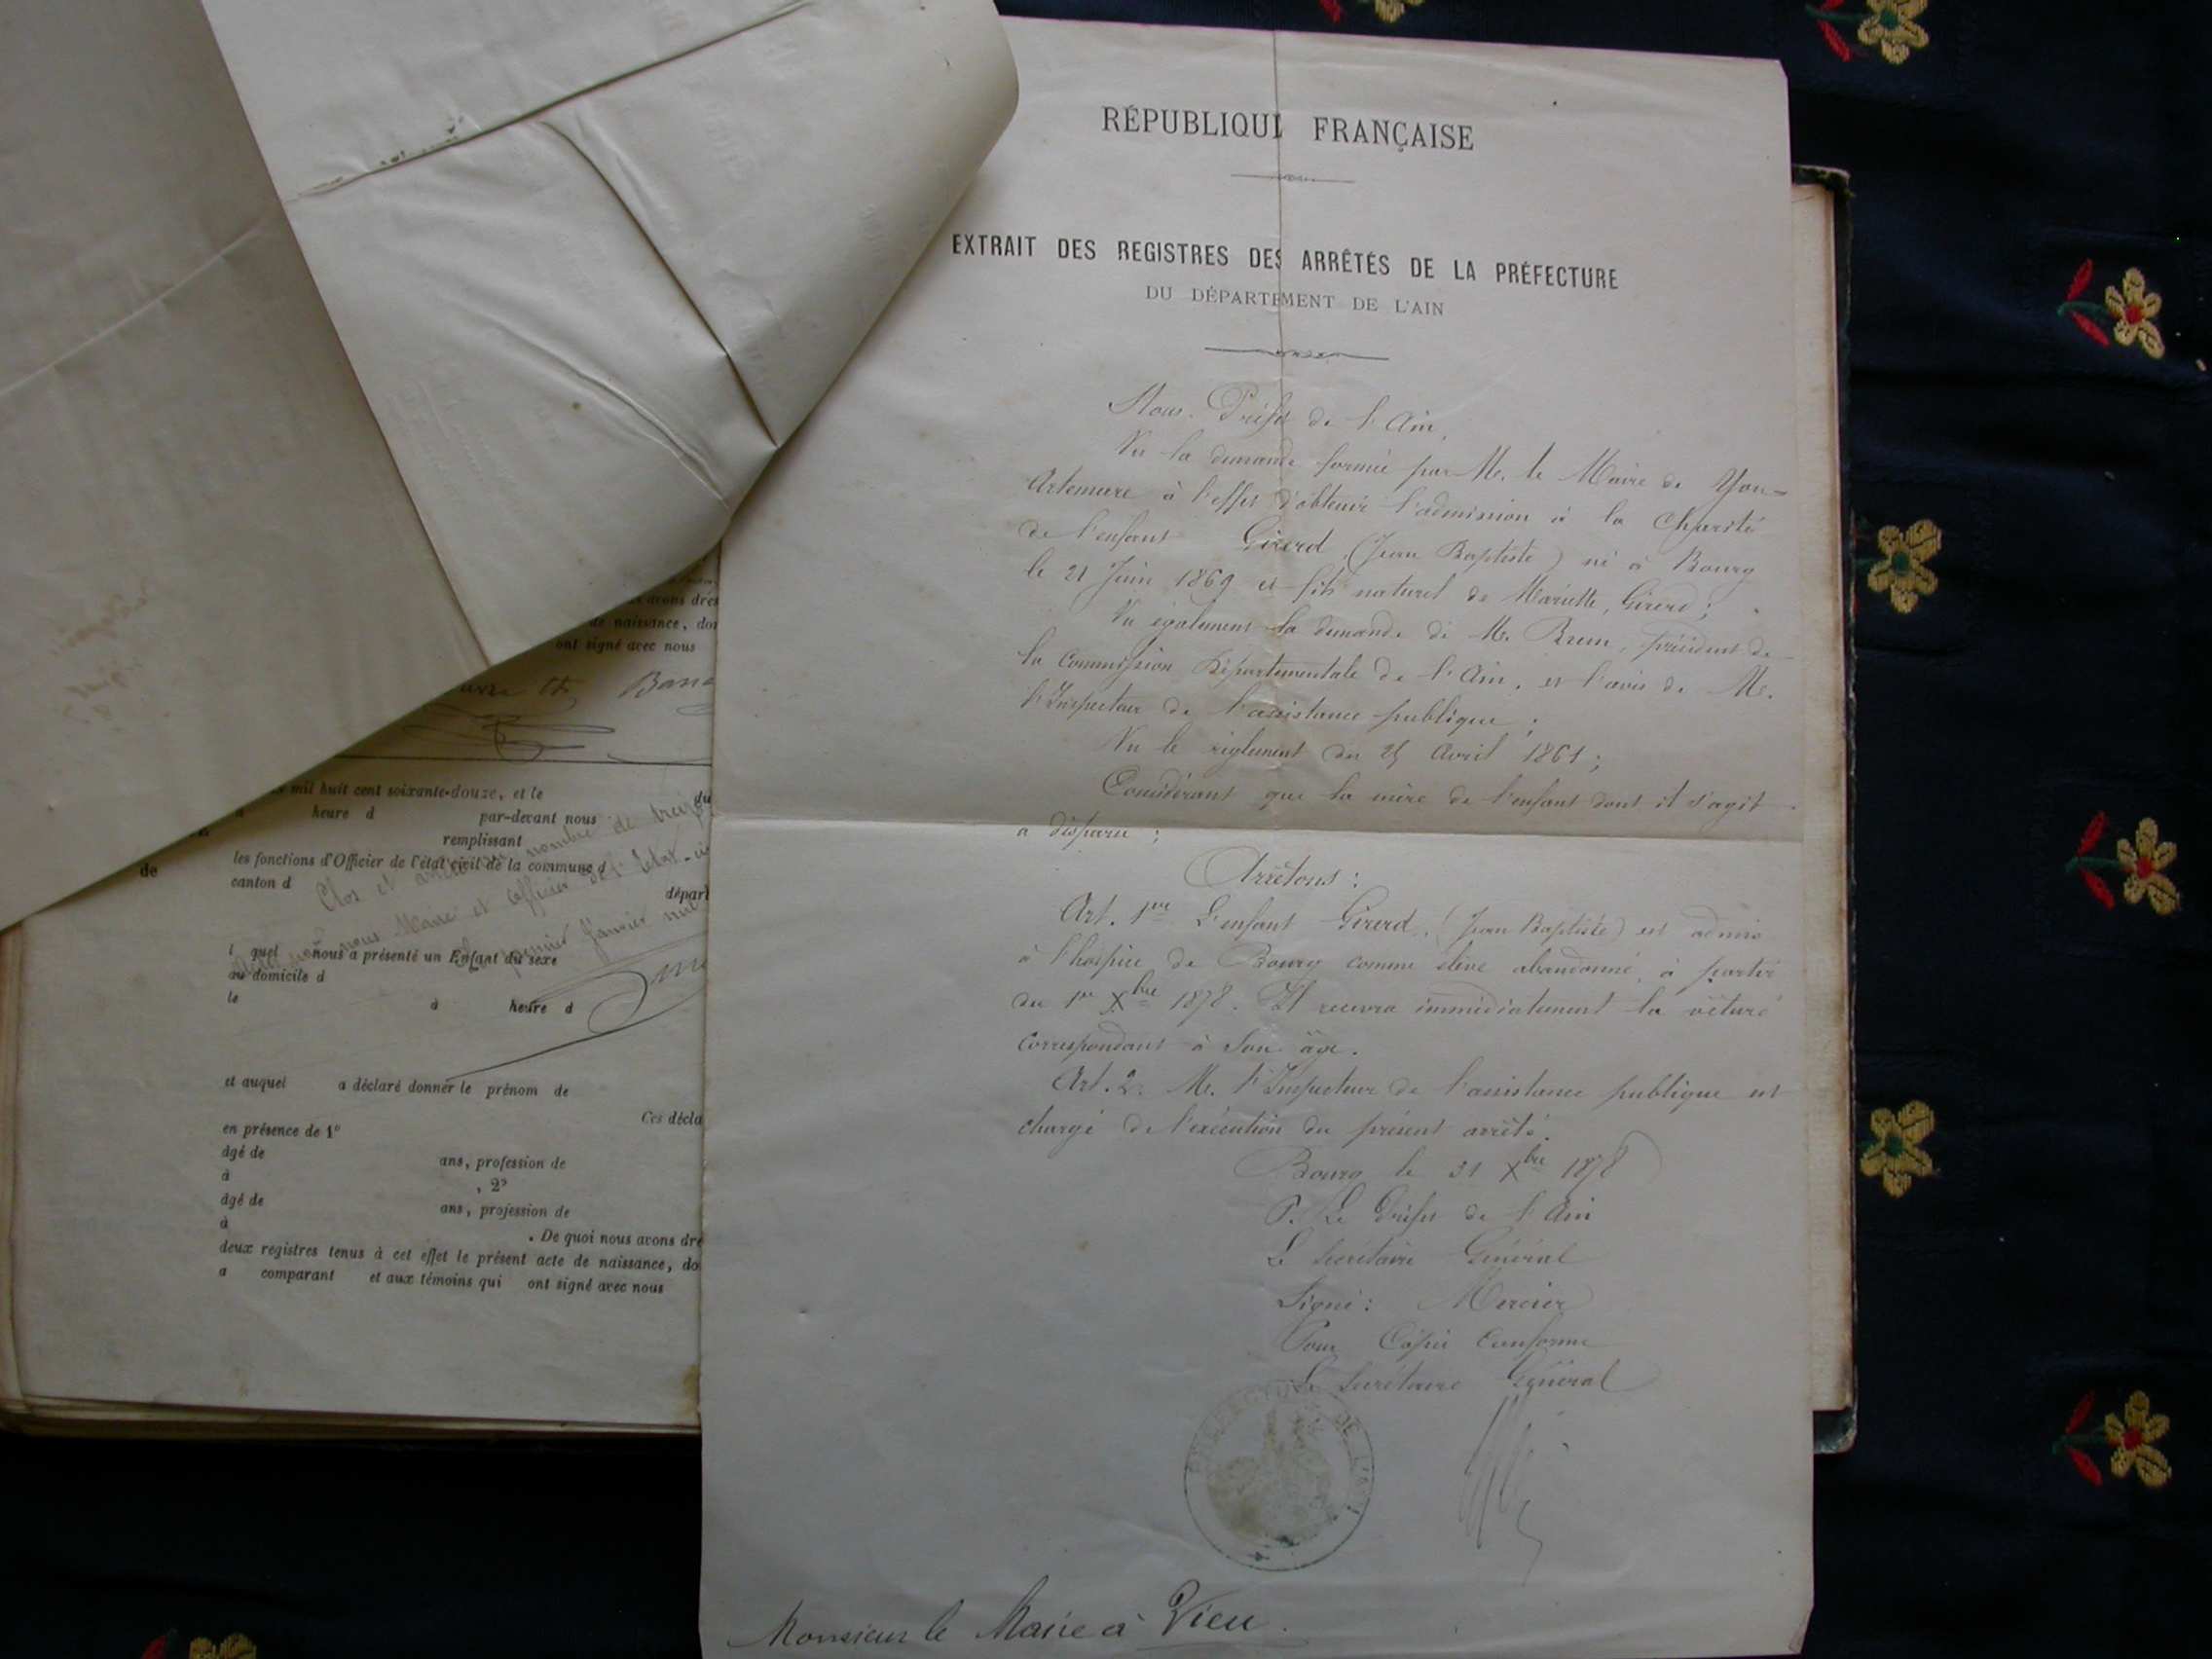 RÉPUBLIQUE FRANÇAISE
EXTRAIT DES REGISTRES DES ARRÊTÉS DE LA PRÉFECTURE
DU DÉPARTEMENT DE L'AIN
Nous Préfet de l'Ain,
Vu la demande formée par M. le Maire de Yon-
Artemare à l'effet d'obtenir l'admission à la Charité
de l'enfant Girerd (Jean Baptiste) né à Bourg
le 21 Juin 1869 et fils naturel de Mariette Girerd ;
Vu également la demande de M. Brun, président de
la Commission Départementale de l'Ain, et l'avis de M.
l'Inspecteur de l'assistance publique ;
Vu le règlement du 25 Avril 1861 ;
Considérant que la mère de l'enfant dont il s'agit
a disparu ;
Arrêtons :
Art. 1er L'enfant Girerd (Jean Baptiste) est admis
à l'hospice de Bourg comme élève abandonné à partir
du 1er Xbre 1878. Il recevra immédiatement la vêture
correspondant à son âge.
Art. 2. M. l'Inspecteur de l'assistance publique est
chargé de l'exécution du présent arrêté.
Bourg le 31 Xbre 1878
P. Le Préfet de l'Ain
Le Secrétaire Général
Signé : Mercier
Pour Copie Conforme
Le Secrétaire Général
DE L'AIN
Monsieur le Maire à Vieu.
avons dres
de naissance, don
ont signé avec nous
mil huit cent soixante-douze, et le du
à heure d par-devant nous
remplissant
les fonctions d'Officier de l'état civil de la commune d
de canton d départ
Clos et nombre de
nous Maire et officier de l'état-ci
premier Janvier mil
l quel nous a présenté un Enfant du sexe
au domicile d
le à heure d
et auquel a déclaré donner le prénom de
Ces décla
en présence de 1°
âgé de ans, profession de
à , 2°
âgé de ans, profession de
à . De quoi nous avons dre
deux registres tenus à cet effet le présent acte de naissance, do
a comparant et aux témoins qui ont signé avec nous